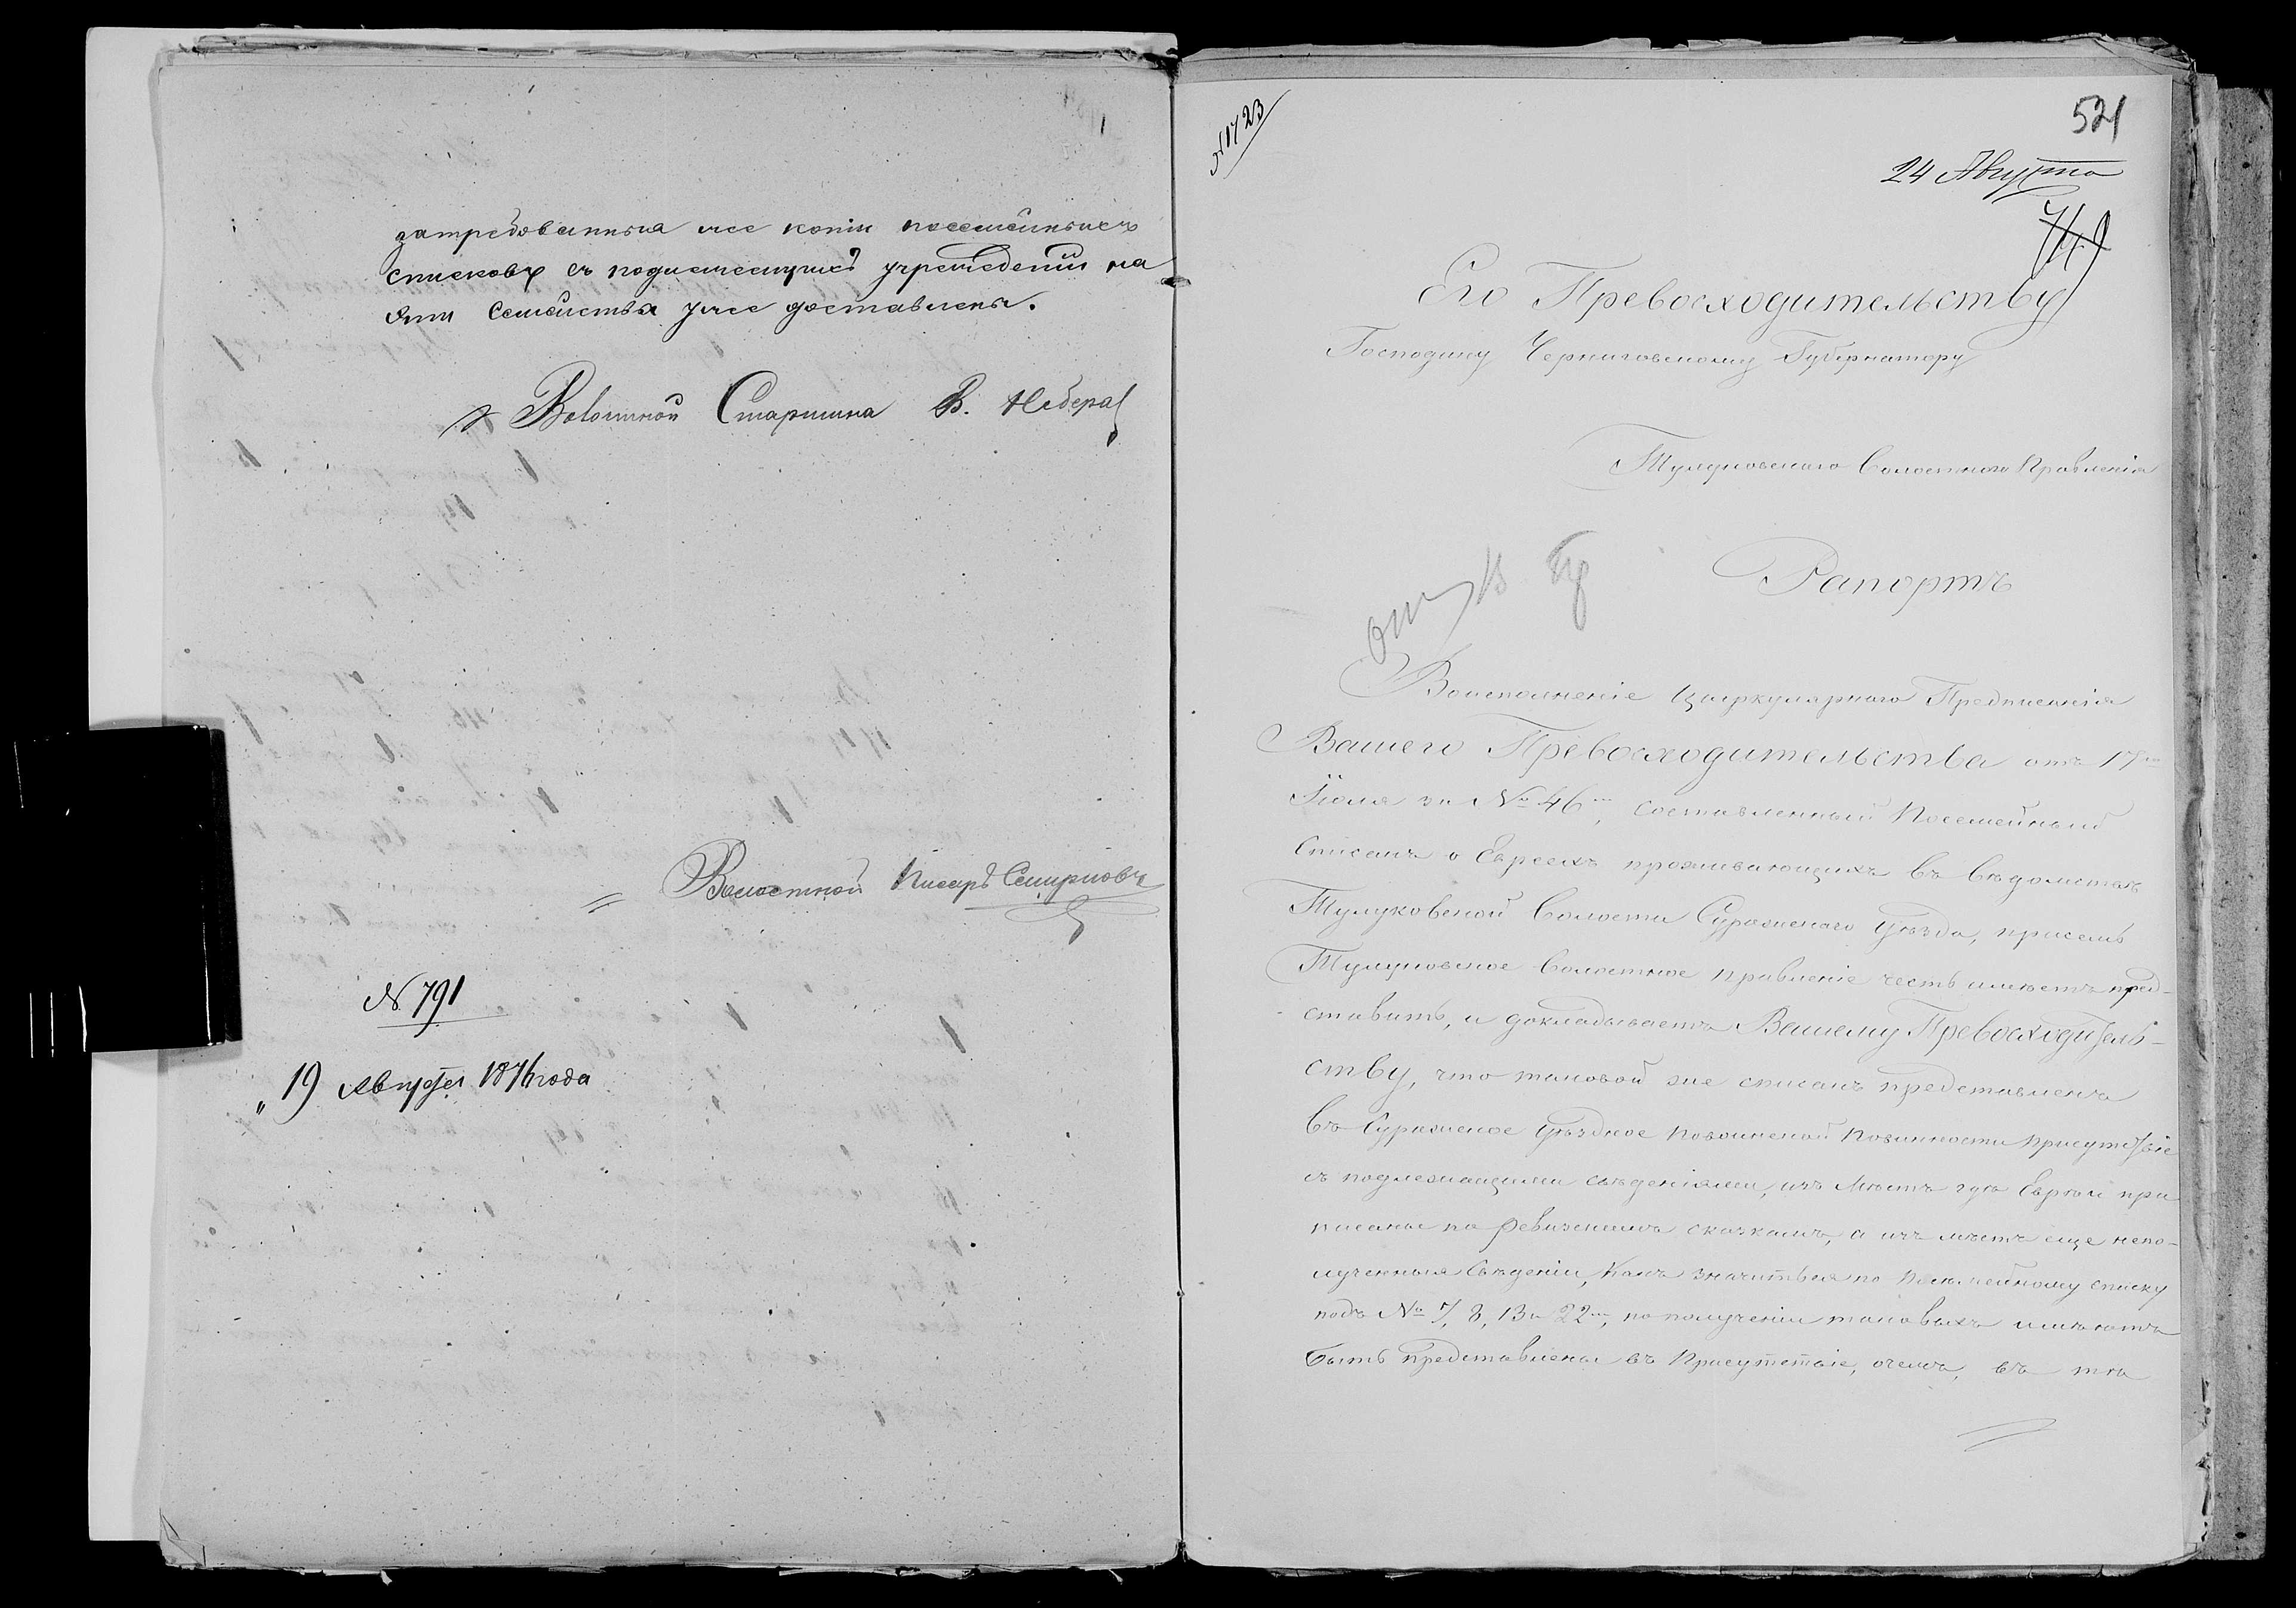 затребованныя же копіи посемейныхъ
списковъ съ подлежащихъ учрежденій на
эти семейства уже доставлены.
Волостной Старшина В.
Волостной Писарь Смирновъ
№ 791
"19 Августа 1876 года
№ 1723
521
24 Августа
Его Превосходительству
Господину Черниговскому Губернатору
Тулуковскаго Волостного Правленія
Рапортъ
Воисполненіе Циркулярнаго Предписанія
Вашего Превосходительства отъ 17го
Іюля за № 46м, составленный Посемейный
Списокъ о Евреяхъ проживающихъ въ вѣдомствѣ
Тулуковской Волости Суражскаго Уѣзда, присемъ
Тулуковское Волостное правленіе честь имѣетъ пред-
ставить, и докладываетъ Вашему Превосходитель-
ству, что таковой же списокъ представленъ
въ Суражское Уѣздное повоинской повинности присутствіе
съ подлежащими свѣденіями, изъ мѣстъ гдѣ Евреи при
писаны по ревизскимъ сказкамъ, а изъ мѣстъ еще непо-
лученныя свѣденіи, какъ значиться по посѣмейному списку
подъ № 7, 8, 13 и 22м, по полученіи таковыхъ имѣютъ
быть представлены въ Присутствіе, очемъ, въ